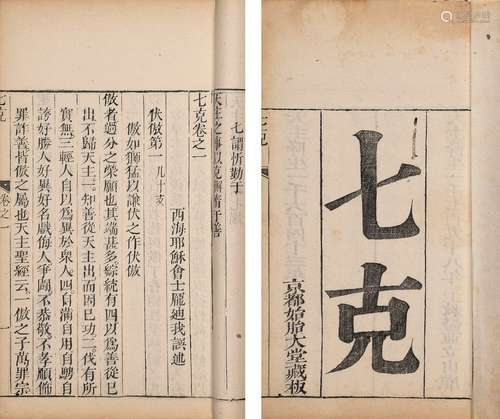 七克
京都始胎大堂藏板
七克
七謂忻勤于
天主之事以克懈惰于善
七克卷之一
西海耶穌會士龐迪我譔述
伏傲第一 凡十支
傲如獅猛以謙伏之作伏傲
傲者過分之榮願也其端甚多綜統有四以爲善從已
出不歸天主一知善從天主出而因已功二伐有所
實無三輕人自以爲異於衆人四自滿自用自
誇好勝好異好名戲侮人爭鬪不恭敬不孝順飾
罪詐善皆傲之屬也天主聖經云一傲之子萬罪宗
七克 卷之一